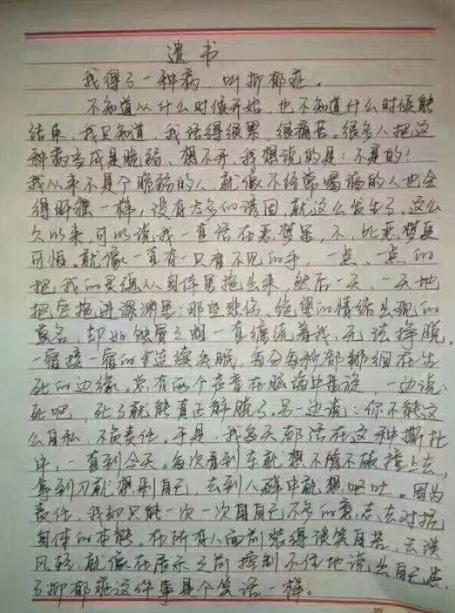 遗书
我得了一种病,叫抑郁症。
不知道从什么时候开始,也不知道什么时候能
结束,我只知道,我活得很累,很痛苦。很多人把这
种病当成是脆弱、想不开,我想说的是:不是的!
我从来不是个脆弱的人,就像不经常喝酒的人也会
得肝癌一样,没有太多的诱因,就这么发生了。这么
久以来,可以说我一直活在恶梦里,不,比恶梦更
可怕。就像一直有一只看不见的手,一点、一点的
把我的灵魂从身体里拖出来,然后一天、一天地
把它拖进深渊里:那些悲伤、绝望的情绪出现的
莫名,却如蚀骨之蛆一直缠绕着我,无法挣脱,
一宿接一宿的连续失眠,每分每秒都徘徊在生
死的边缘,总有两个声音在脑海中盘旋,一边说:
死吧,死了就能真正解脱了,另一边说:你不能这
么自私、不负责任。于是,我每天都活在这种撕扯
中,一直到今天。每次看到车就想不管不顾撞上去,
拿到刀就想刺自己,去到人群中就想呕吐。因为
责任,我却只能一次一次用自己不多的意志去对抗
身体的本能,在所有人面前装得谈笑自若,云淡
风轻,就像在启示之前控制不住地说出自己患
了抑郁症这件事是个笑话一样。